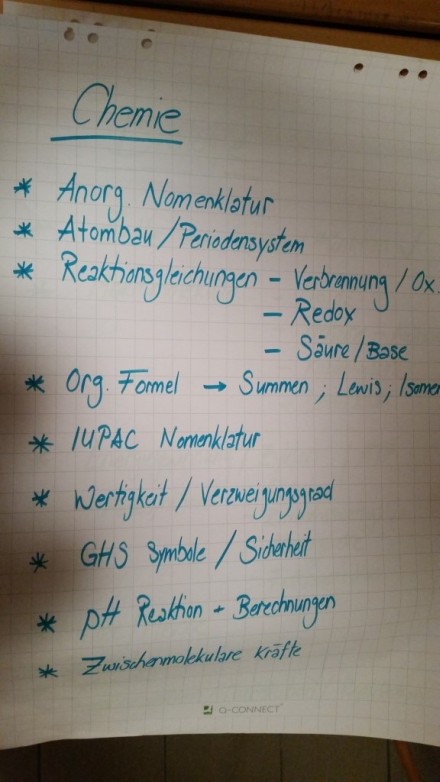 Chemie
* Anorg. Nomenklatur
* Atombau / Periodensystem
* Reaktionsgleichungen - Verbrennung / Ox.
- Redox
- Säure / Base
* Org. Formel → Summen ; Lewis ; Isomer
* IUPAC Nomenklatur
* Wertigkeit / Verzweigungsgrad
* GHS Symbole / Sicherheit
* pH Reaktion + Berechnungen
* Zwischenmolekulare Kräfte
Q-CONNECT